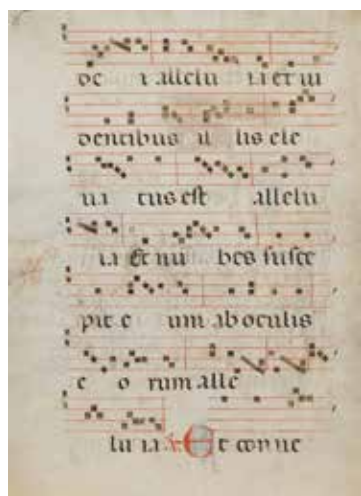 oe i allelu ia et ui
dentibus il lis ele
ua tus est allelu
ia Et nu bes susce
pit e um ab oculis
e o rum alle
lu ia Et conue